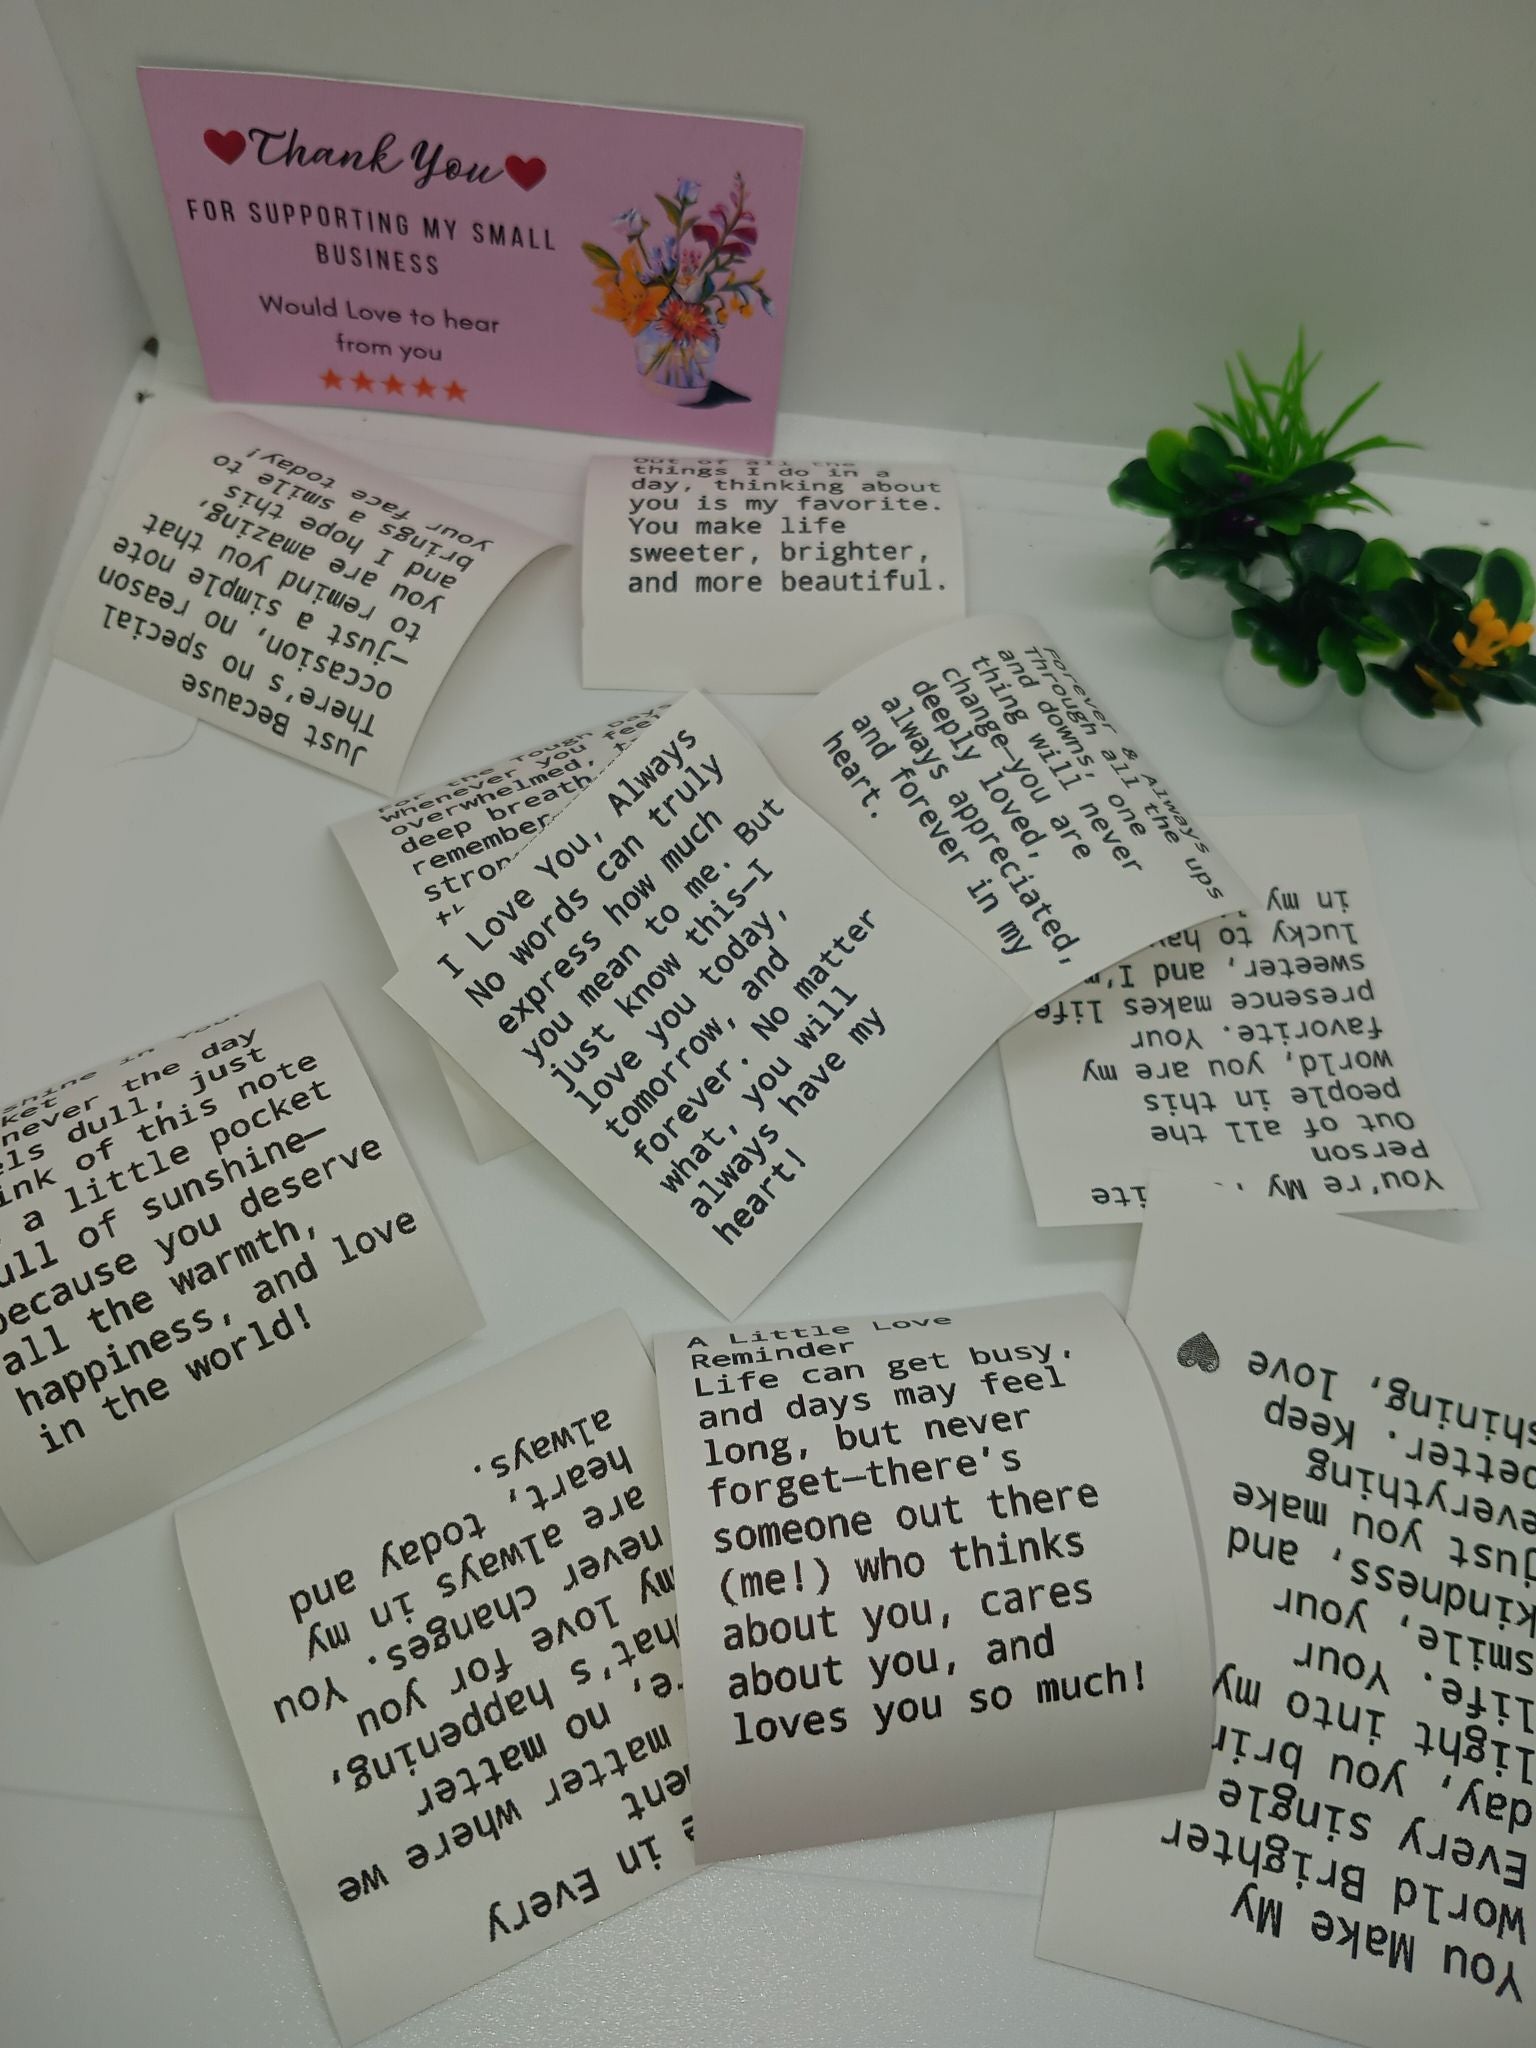 Thank You
FOR SUPPORTING MY SMALL
BUSINESS
Would Love to hear
from you
Just Because
There's no special
occasion, no reason
—just a simple note
to remind you that
you are amazing,
and I hope this
brings a smile to
your face today!
Out of all the
things I do in a
day, thinking about
you is my favorite.
You make life
sweeter, brighter,
and more beautiful.
For the Tough Days
Whenever you feel
overwhelmed,
deep breath
remember
Forever & Always
Through all the ups
and downs, one
thing will never
change—you are
deeply loved,
always appreciated,
and forever in my
heart.
I Love You, Always
No words can truly
express how much
you mean to me. But
just know this—I
love you today,
tomorrow, and
forever. No matter
what, you will
always have my
heart!
You're My
Person
Out of all the
people in this
world, you are my
favorite. Your
presence makes life
sweeter, and I'm
lucky to
in my
the day
dull, just
of this note
a little pocket
of sunshine—
because you deserve
all the warmth,
happiness, and love
in the world!
in Every
matter where we
no matter
happening,
my love for you
never changes. You
are always in my
heart, today and
always.
A Little Love
Reminder
Life can get busy,
and days may feel
long, but never
forget—there's
someone out there
(me!) who thinks
about you, cares
about you, and
loves you so much!
You Make My
World Brighter
Every single
day, you
light into my
life. Your
smile, your
kindness, and
just you make
everything
better. Keep
shining, love